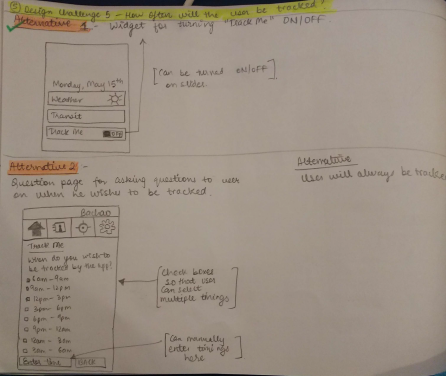 ⑤ Design Challenge 5 - How often will the user be tracked?
Alternative 1 - Widget for turning "Track Me" ON/OFF.
Monday, May 15th
Weather
Transit
Track Me
OFF
Can be turned ON/OFF
on slider
Alternative 2 -
Question page for asking questions to user
on when he wishes to be tracked.
Alternative
User will always be tracked
Track Me
When do you wish to
be tracked by the app?
6am - 9am
9am - 12pm
12pm - 3pm
3pm - 6pm
6pm - 9pm
9pm - 12am
12am - 3am
3am - 6am
Enter Time
BACK
Check boxes
so that user
can select
multiple things
Can manually
enter timings
here